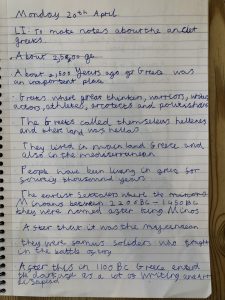 Monday 20th April
LI: To make notes about the anciet
greeks.
About 2,50,00 ge
About 2,500 years ago ge Greece was
an important place
Greeks where great thinkers, warriors, writers
actors, athletes, artists and politicians
The Greeks called themselves hellenes
and their land was hellas
They lived in main land Greece and
also in the mediterranean
People have been living in grice for
thousand years
The earliest where the
Minoans between 2200BC - 1450BC
they were named after king Minos
After that it was the mycinean
they were famus soliders who
in the battle of troy
After this in 1100 BC Greece enterd
dark age as a lot of writing and art
disapeard